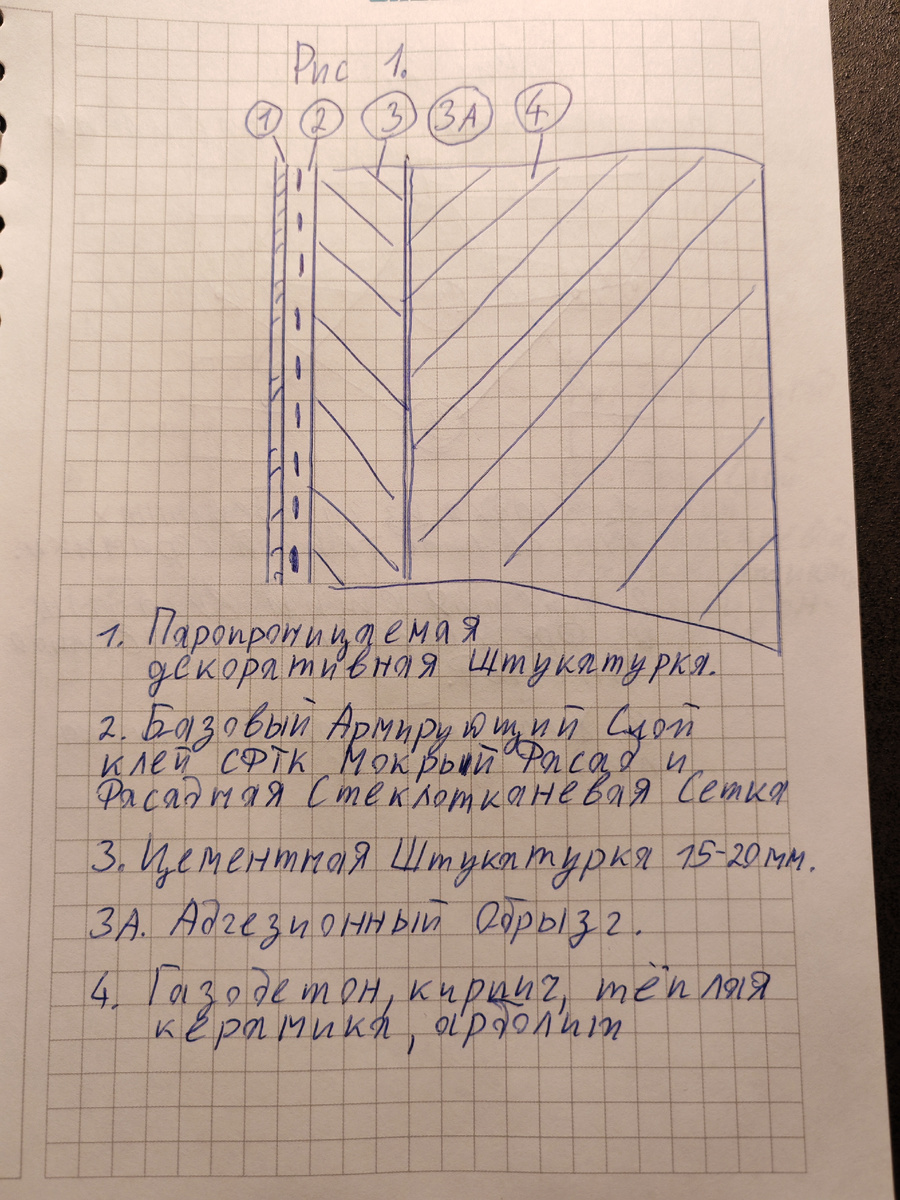 Рис 1.
1 2 3 3А 4
1. Паропроницаемая
декоративная штукатурка.
2. Базовый Армирующий Слой
клей СФТК Мокрый Фасад и
Фасадная Стеклотканевая Сетка
3. Цементная Штукатурка 15-20мм.
3А. Адгезионный Обрызг.
4. Газобетон, кирпич, тёплая
керамика, арболит